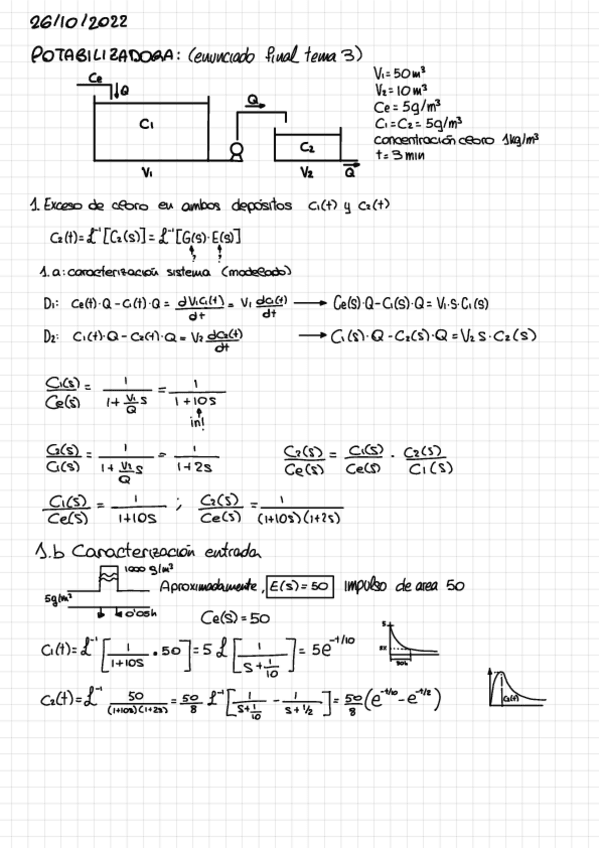 26/10/2022
POTABILIZADORA: (enunciado final tema 3)
V₁ = 50 m³
V₂ = 10 m³
Ce = 5g/m³
C₁ = C₂ = 5g/m³
concentración cloro 1kg/m³
t = 3 min
Ce
Q
C₁
V₁
Q
C₂
V₂
Q
1. Exceso de cloro en ambos depósitos C₁(t) y C₂(t)
C₂(t) = ℒ⁻¹[C₂(s)] = ℒ⁻¹[G(s)·E(s)]
? ?
1.a: caracterización sistema (modelado)
D₁: Ce(t)·Q - C₁(t)·Q = dV₁C₁(t)/dt = V₁ dC₁(t)/dt → Ce(s)·Q - C₁(s)·Q = V₁·s·C₁(s)
D₂: C₁(t)·Q - C₂(t)·Q = V₂ dC₂(t)/dt → C₁(s)·Q - C₂(s)·Q = V₂ s·C₂(s)
C₁(s)/Ce(s) = 1/(1 + V₁/Q s) = 1/(1+10s)
in!
C₂(s)/C₁(s) = 1/(1 + V₂/Q s) = 1/(1+2s) C₂(s)/Ce(s) = C₁(s)/Ce(s) · C₂(s)/C₁(s)
C₁(s)/Ce(s) = 1/(1+10s) ; C₂(s)/Ce(s) = 1/((1+10s)(1+2s))
1.b Caracterización entrada
1000 g/m³
5g/m³
0'05h
Aproximadamente, E(s) = 50 impulso de area 50
Ce(s) = 50
C₁(t) = ℒ⁻¹[1/(1+10s) · 50] = 5 ℒ[1/(s + 1/10)] = 5e^(-t/10)
C₂(t) = ℒ⁻¹ 50/((1+10s)(1+2s)) = 50/8 ℒ⁻¹[1/(s + 1/10) - 1/(s + 1/2)] = 50/8 (e^(-t/10) - e^(-t/2))
C₂(t)